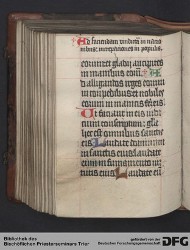 Ad faciendam vindictā in natio
nibus: increpationes in populis.
eorum et gladij ancipites
in manibus eorū. Ad
d alligandos reges eorum
in compedibus: et nobiles
eorum in manicis ferreis.
Ut faciant in eis iudi
cium conscriptum: glo
ria hec est omnibus sanctis
eius. Laudate dominum
in sanctis eius: laudate
eum in firmamento uir
tutis eius. Laudate eū
Bibliothek des
Bischöflichen Priesterseminars Trier
gefördert von der
Deutschen Forschungsgemeinschaft
DFG